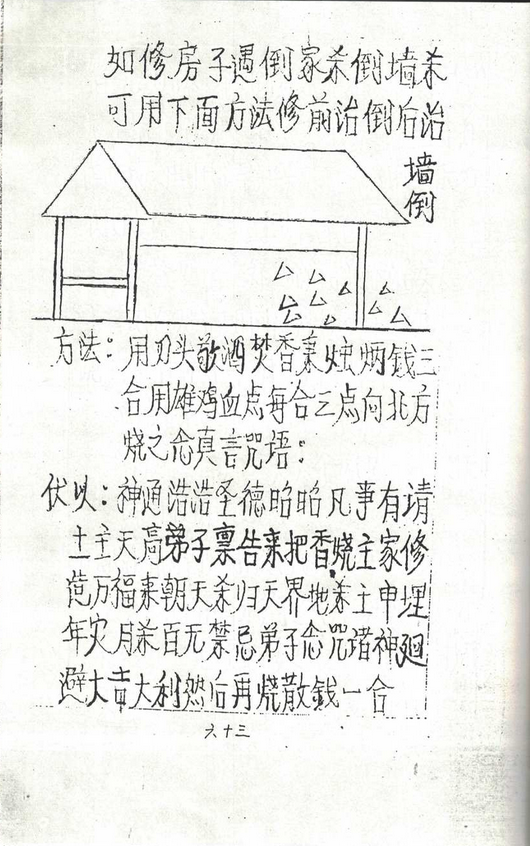 如修房子遇倒家杀倒墙杀
可用下面方法修前治倒后治
墙倒
方法：用刃头敬酒焚香秉烛炳钱三
合用雄鸡血点每合三点向北方
烧之念真言咒语：
伏以：神通浩浩圣德昭昭凡事有请
土主天高弟子禀告来把香烧主家修
万福来朝天杀归天界地杀土中埋
年灾月杀百无禁忌弟子念咒诸神迴
避大吉大利然后再烧散钱一合
六十三